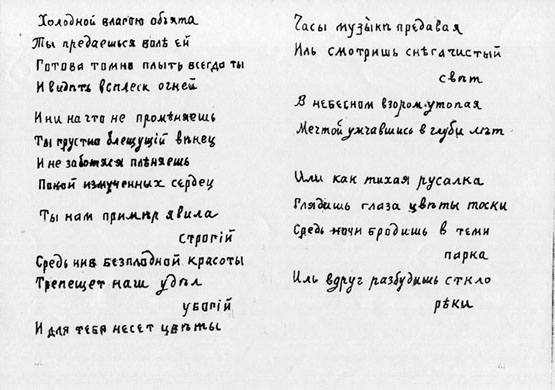 Холодной влагою объята
Ты предаешься волѣ ей
Готова томно плыть всегда ты
И видѣть всплеск огней
И ни на что не промѣняешь
Ты грустно блещущій вѣнец
И не заботясь плѣняешь
Покой измученных сердец
Ты нам примѣр явила
строгій
Средь нив безплодной красоты
Трепещет наш удѣл
убогій
И для тебя несет цвѣты
Часы музыкѣ предавая
Иль смотришь снѣга чистый
свѣт
В небесном взором утопая
Мечтой умчавшись в глуби лѣт
Или как тихая русалка
Глядишь глаза цвѣты тоски
Средь ночи бродишь в теми
парка
Иль вдруг разбудишь сткло
рѣки